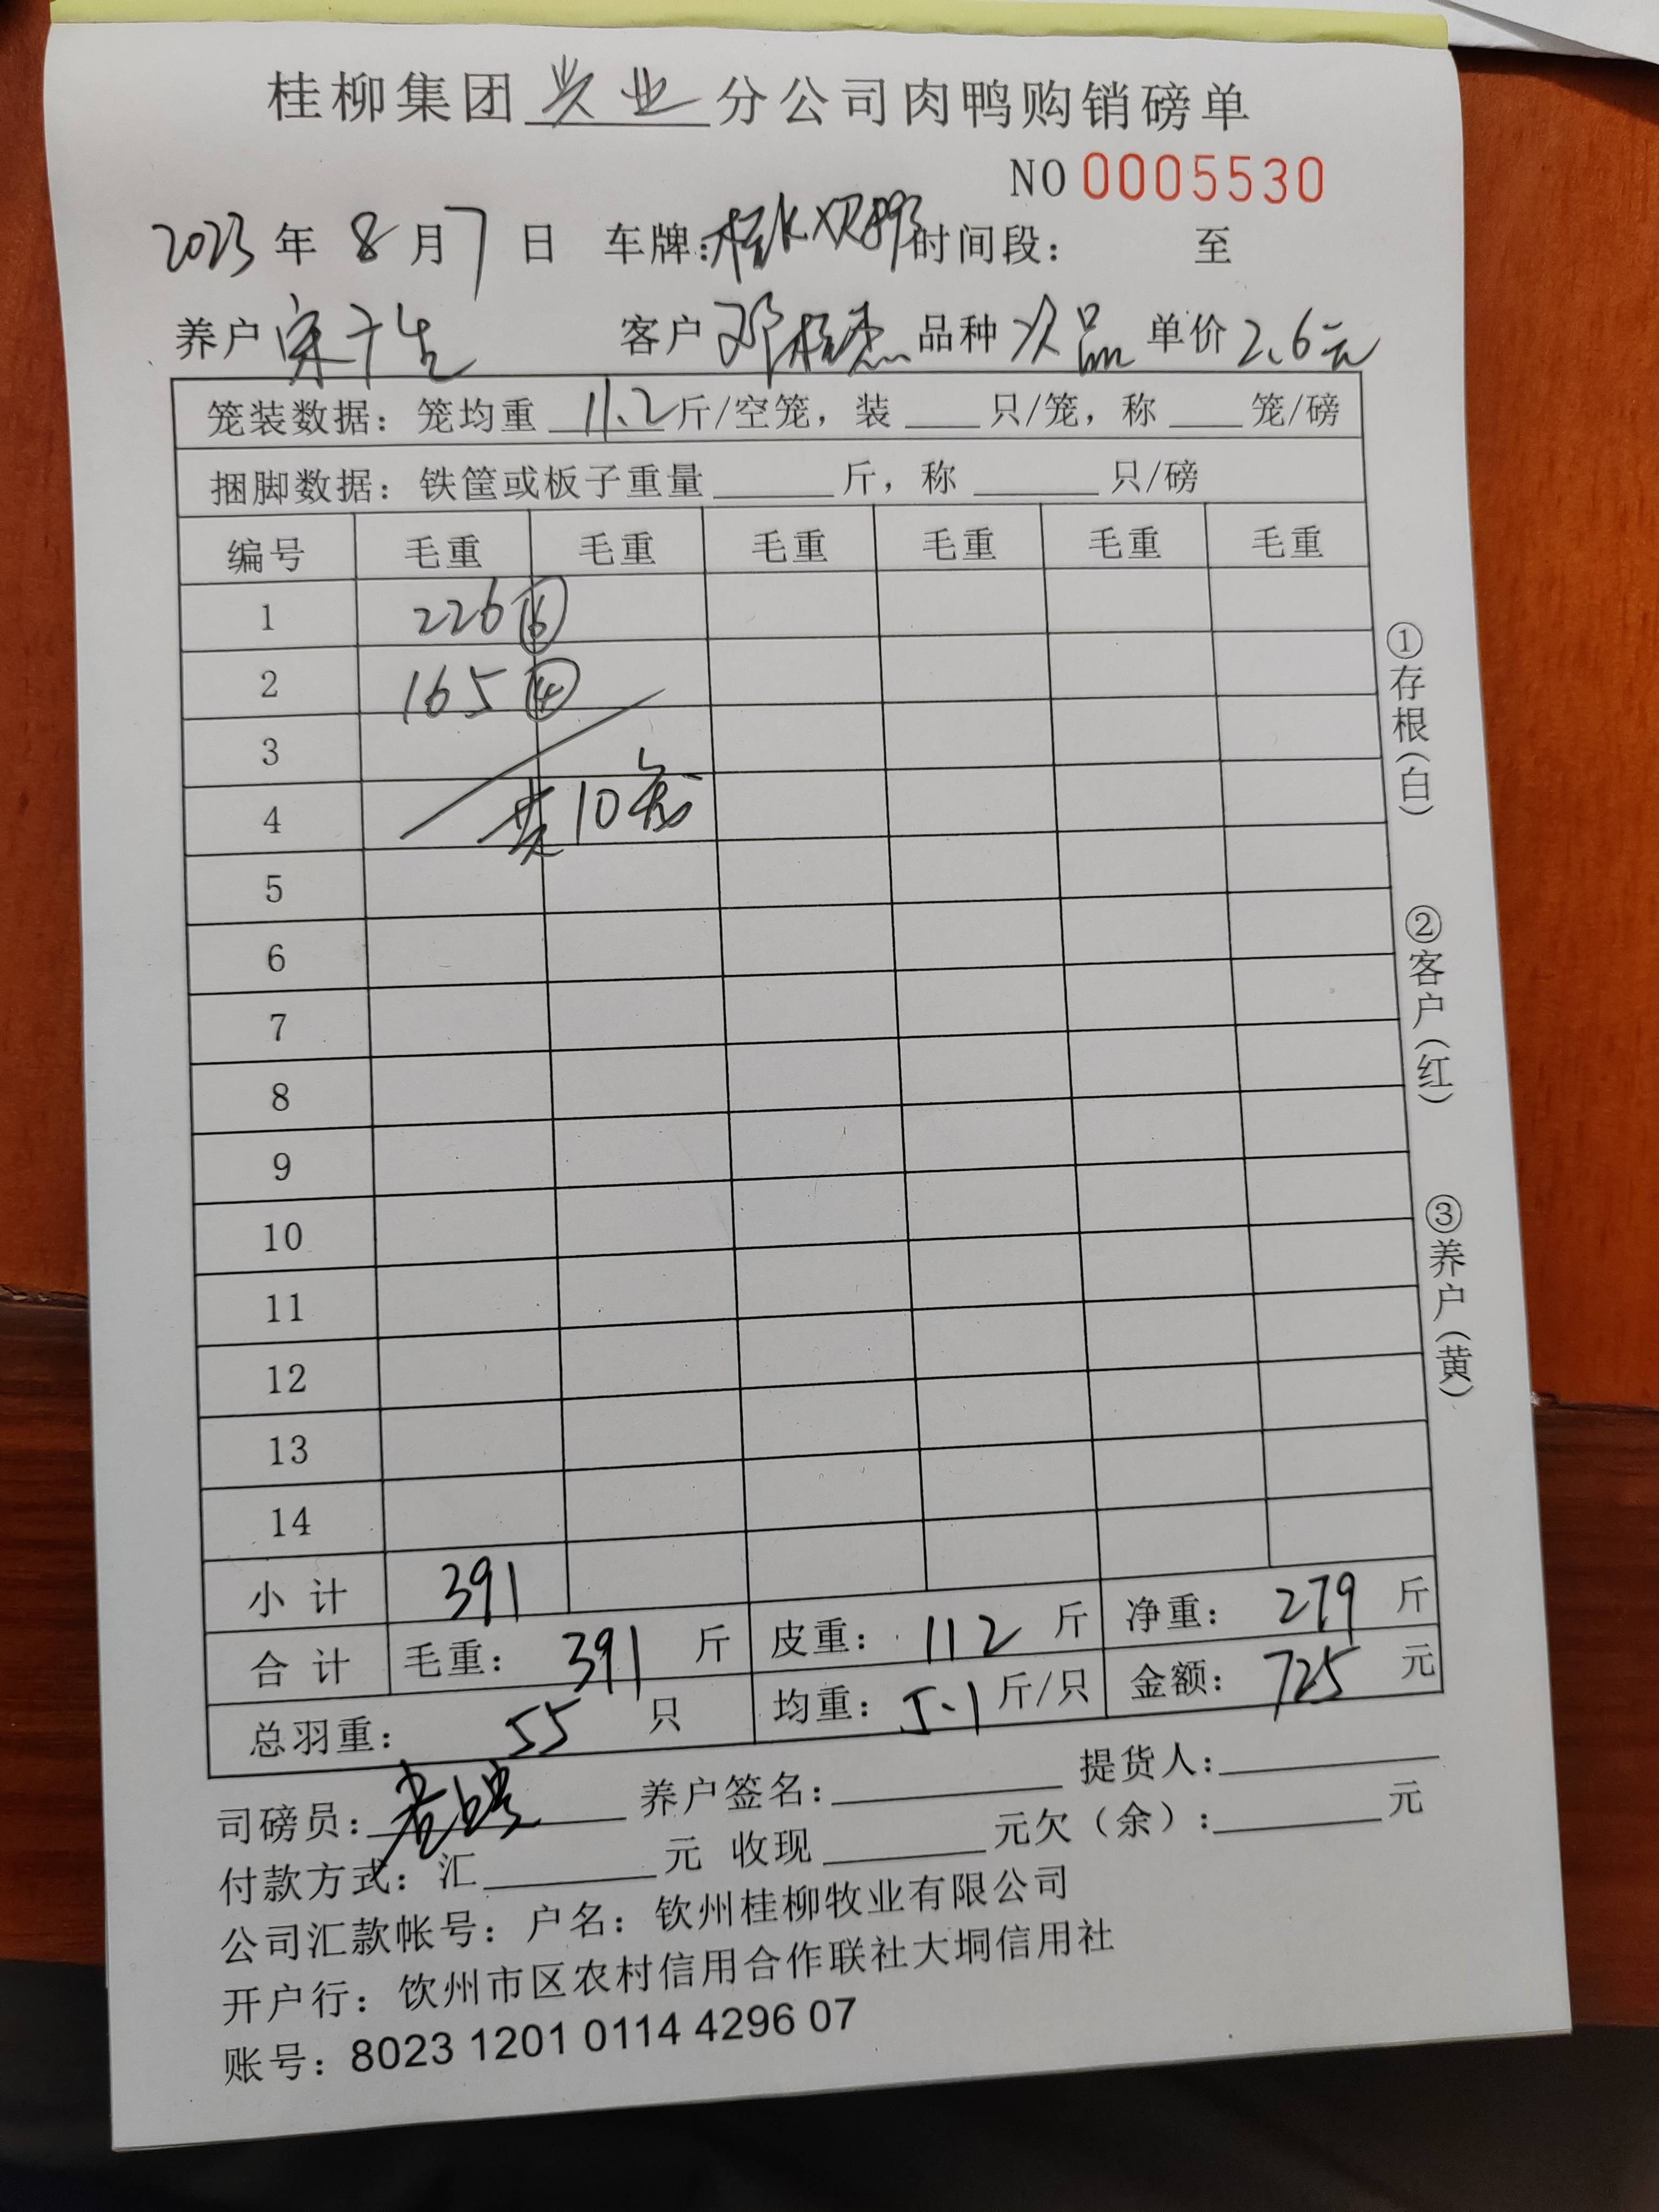 桂柳集团兴业分公司肉鸭购销磅单
NO 0005530
2023年8月7日 车牌: 时间段: 至
养户 宋广生 客户 邓桂杰 品种 次品 单价 2.6元
笼装数据: 笼均重 11.2 斤/空笼, 装____只/笼, 称____笼/磅
捆脚数据: 铁筐或板子重量______斤, 称______只/磅
编号 毛重 毛重 毛重 毛重 毛重 毛重
1 226 ⑥
2 165 ④
3
4 共10笼
5
6
7
8
9
10
11
12
13
14
小计 391
合计 毛重: 391 斤 皮重: 112 斤 净重: 279 斤
总羽重: 55 只 均重: 5.1 斤/只 金额: 725 元
司磅员: 养户签名: 提货人:
付款方式: 汇______元 收现______元欠(余):______元
公司汇款帐号: 户名: 钦州桂柳牧业有限公司
开户行: 钦州市区农村信用合作联社大垌信用社
账号: 8023 1201 0114 4296 07
①存根(白)
②客户(红)
③养户(黄)